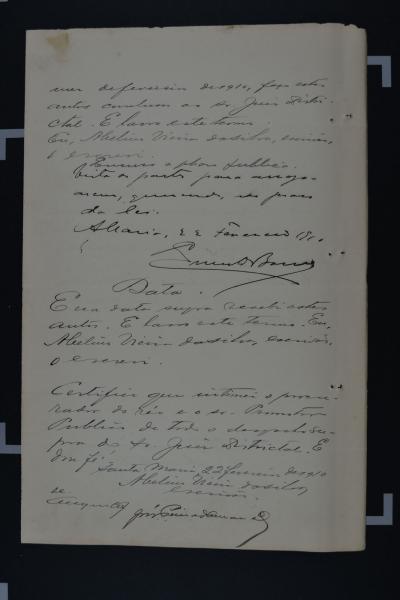 mez de fevereiro de 1910, faço estes
autos conclusos ao Sr. Juiz Distri-
ctal. E lavro este termo.
Eu, Abelino Vieira da Silva, escrivão,
o escrevi.
vista ás partes para arrazo-
arem, querendo, no prazo
da lei.
22 Fevereiro 1910
Data.
E na data supra recebi estes
autos. E lavro este termo. Eu,
Abelino Vieira da Silva, escrivão,
o escrevi.
Certifico que intimei o procu-
rador do réo e o sr. Promotor
Publico de todo o despacho su-
pra do Sr. Juiz Districtal. E
dou fé.
Santa Maria, 22 fevereiro de 1910
Abelino Vieira da Silva,
escrivão.